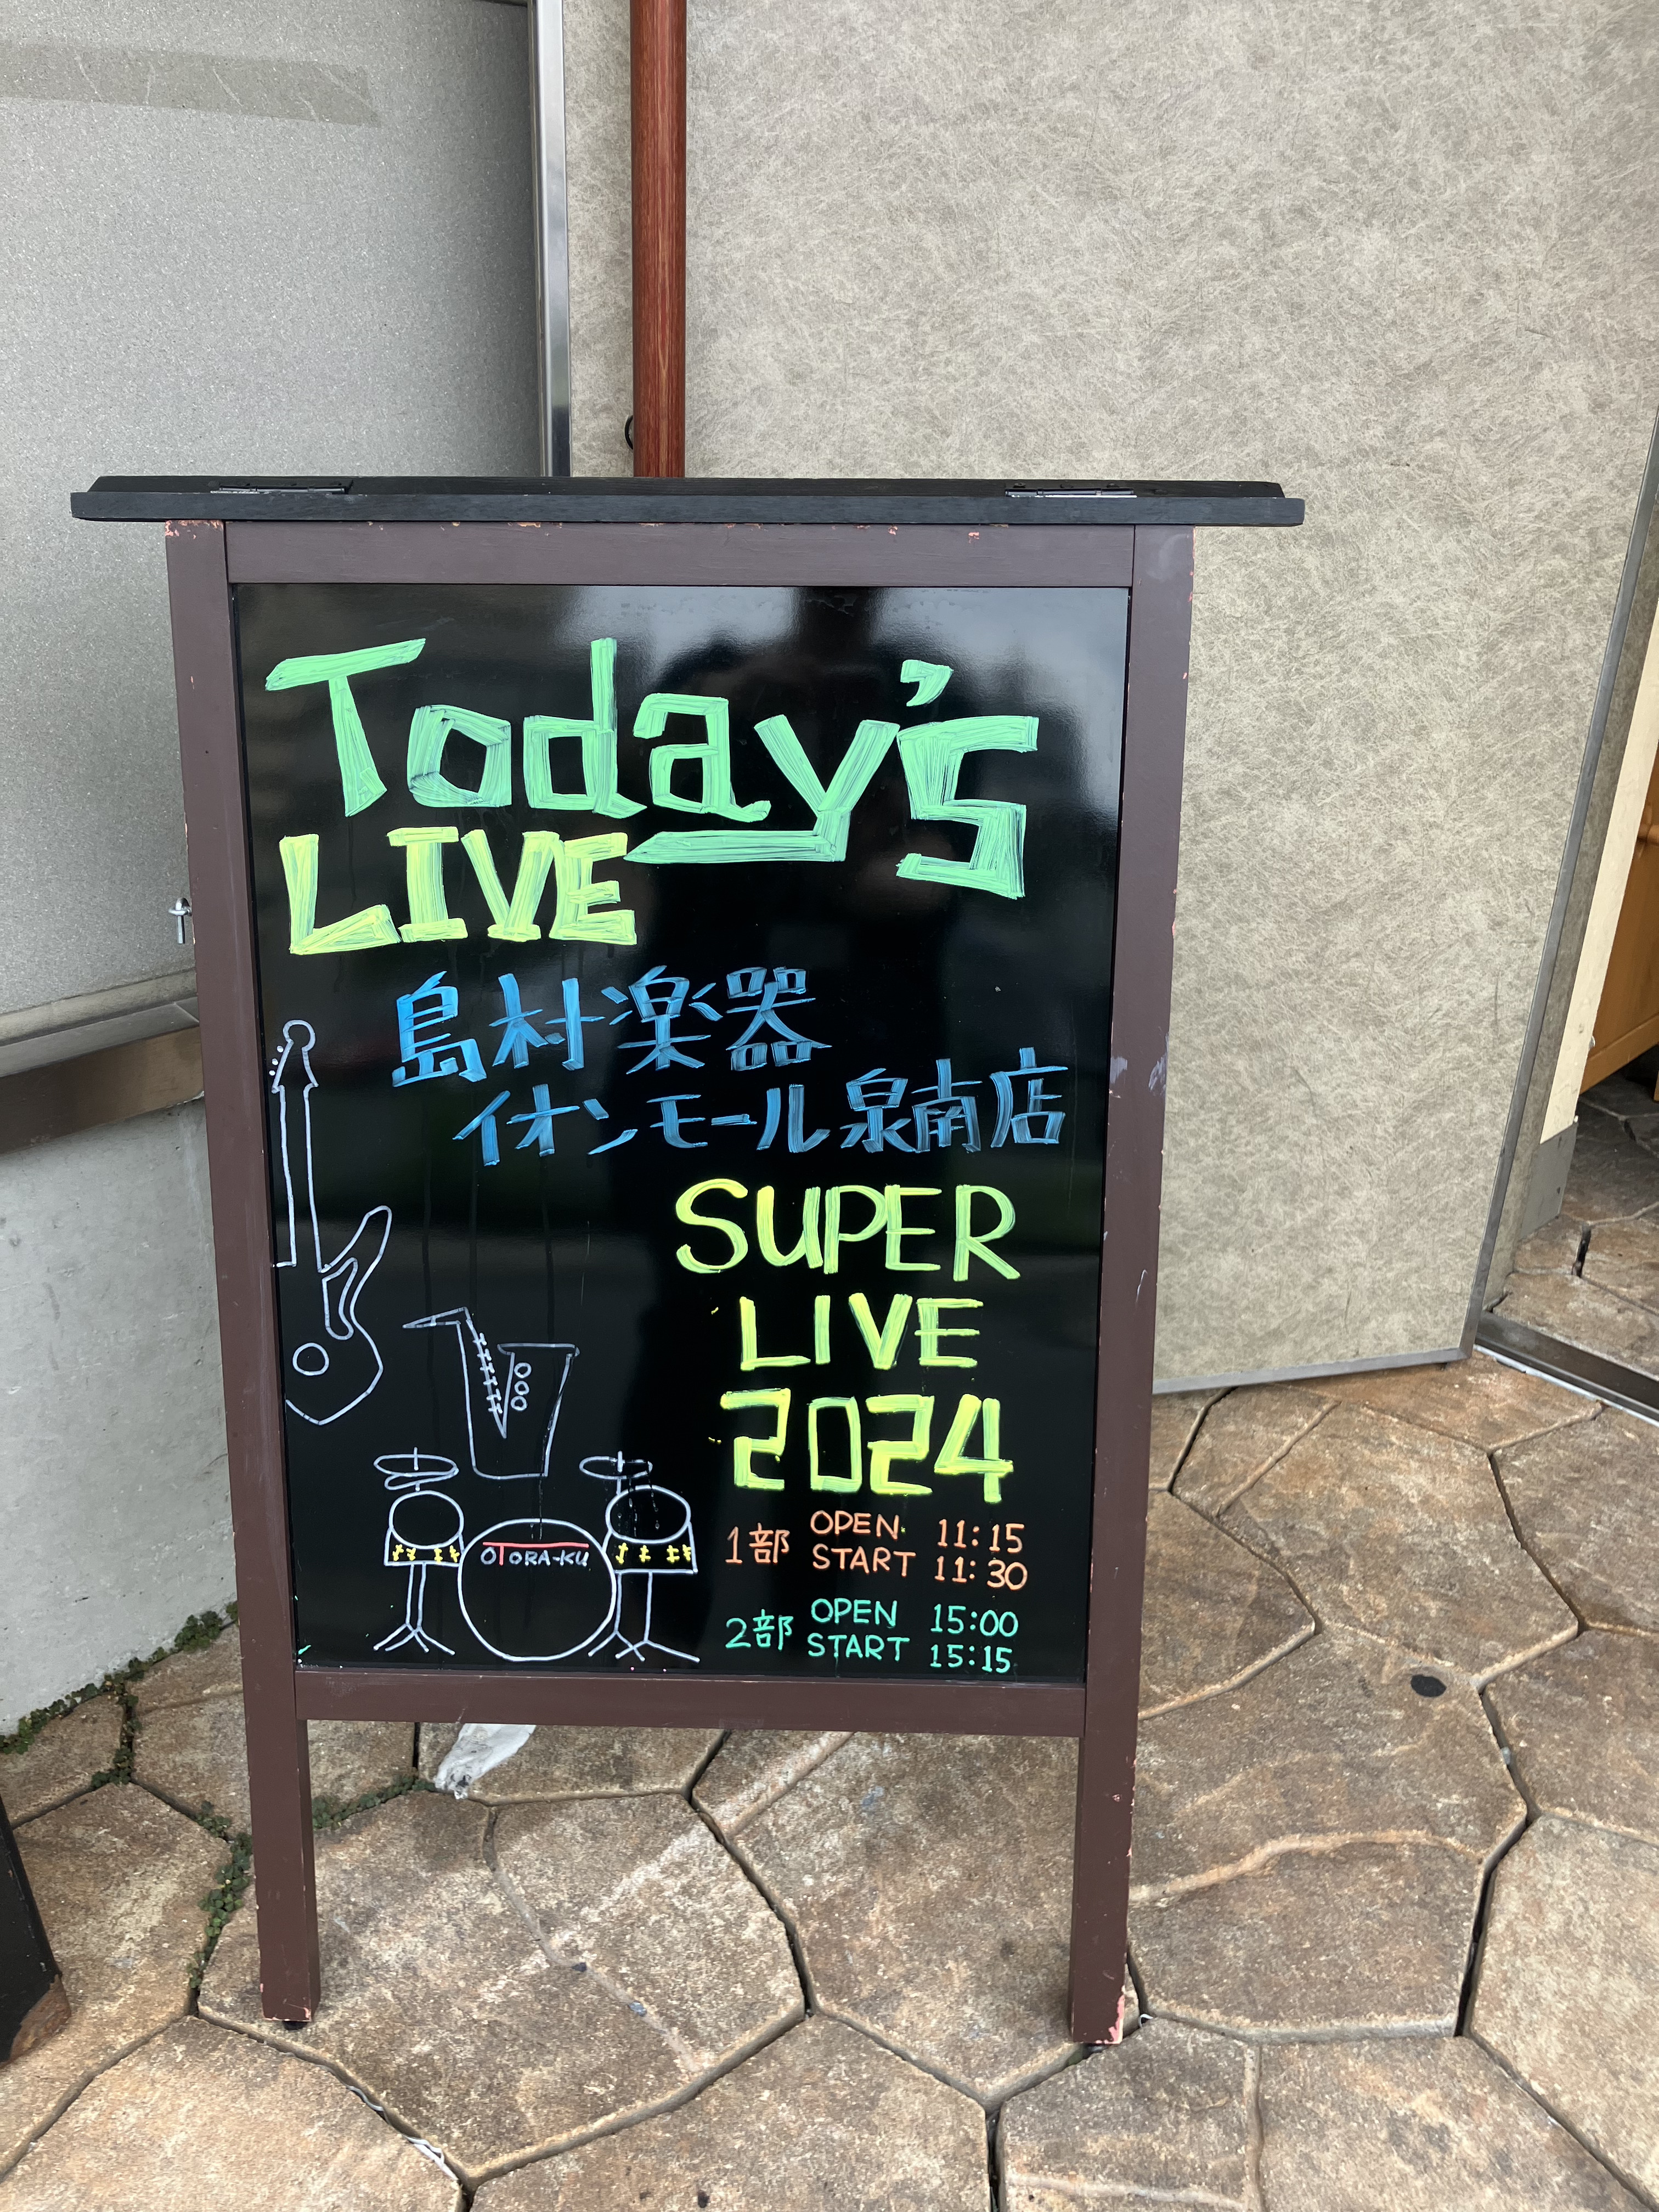 Today's
LIVE
島村楽器
イオンモール泉南店
SUPER
LIVE
2024
1部 OPEN 11:15
START 11:30
2部 OPEN 15:00
START 15:15
OTORA-KU